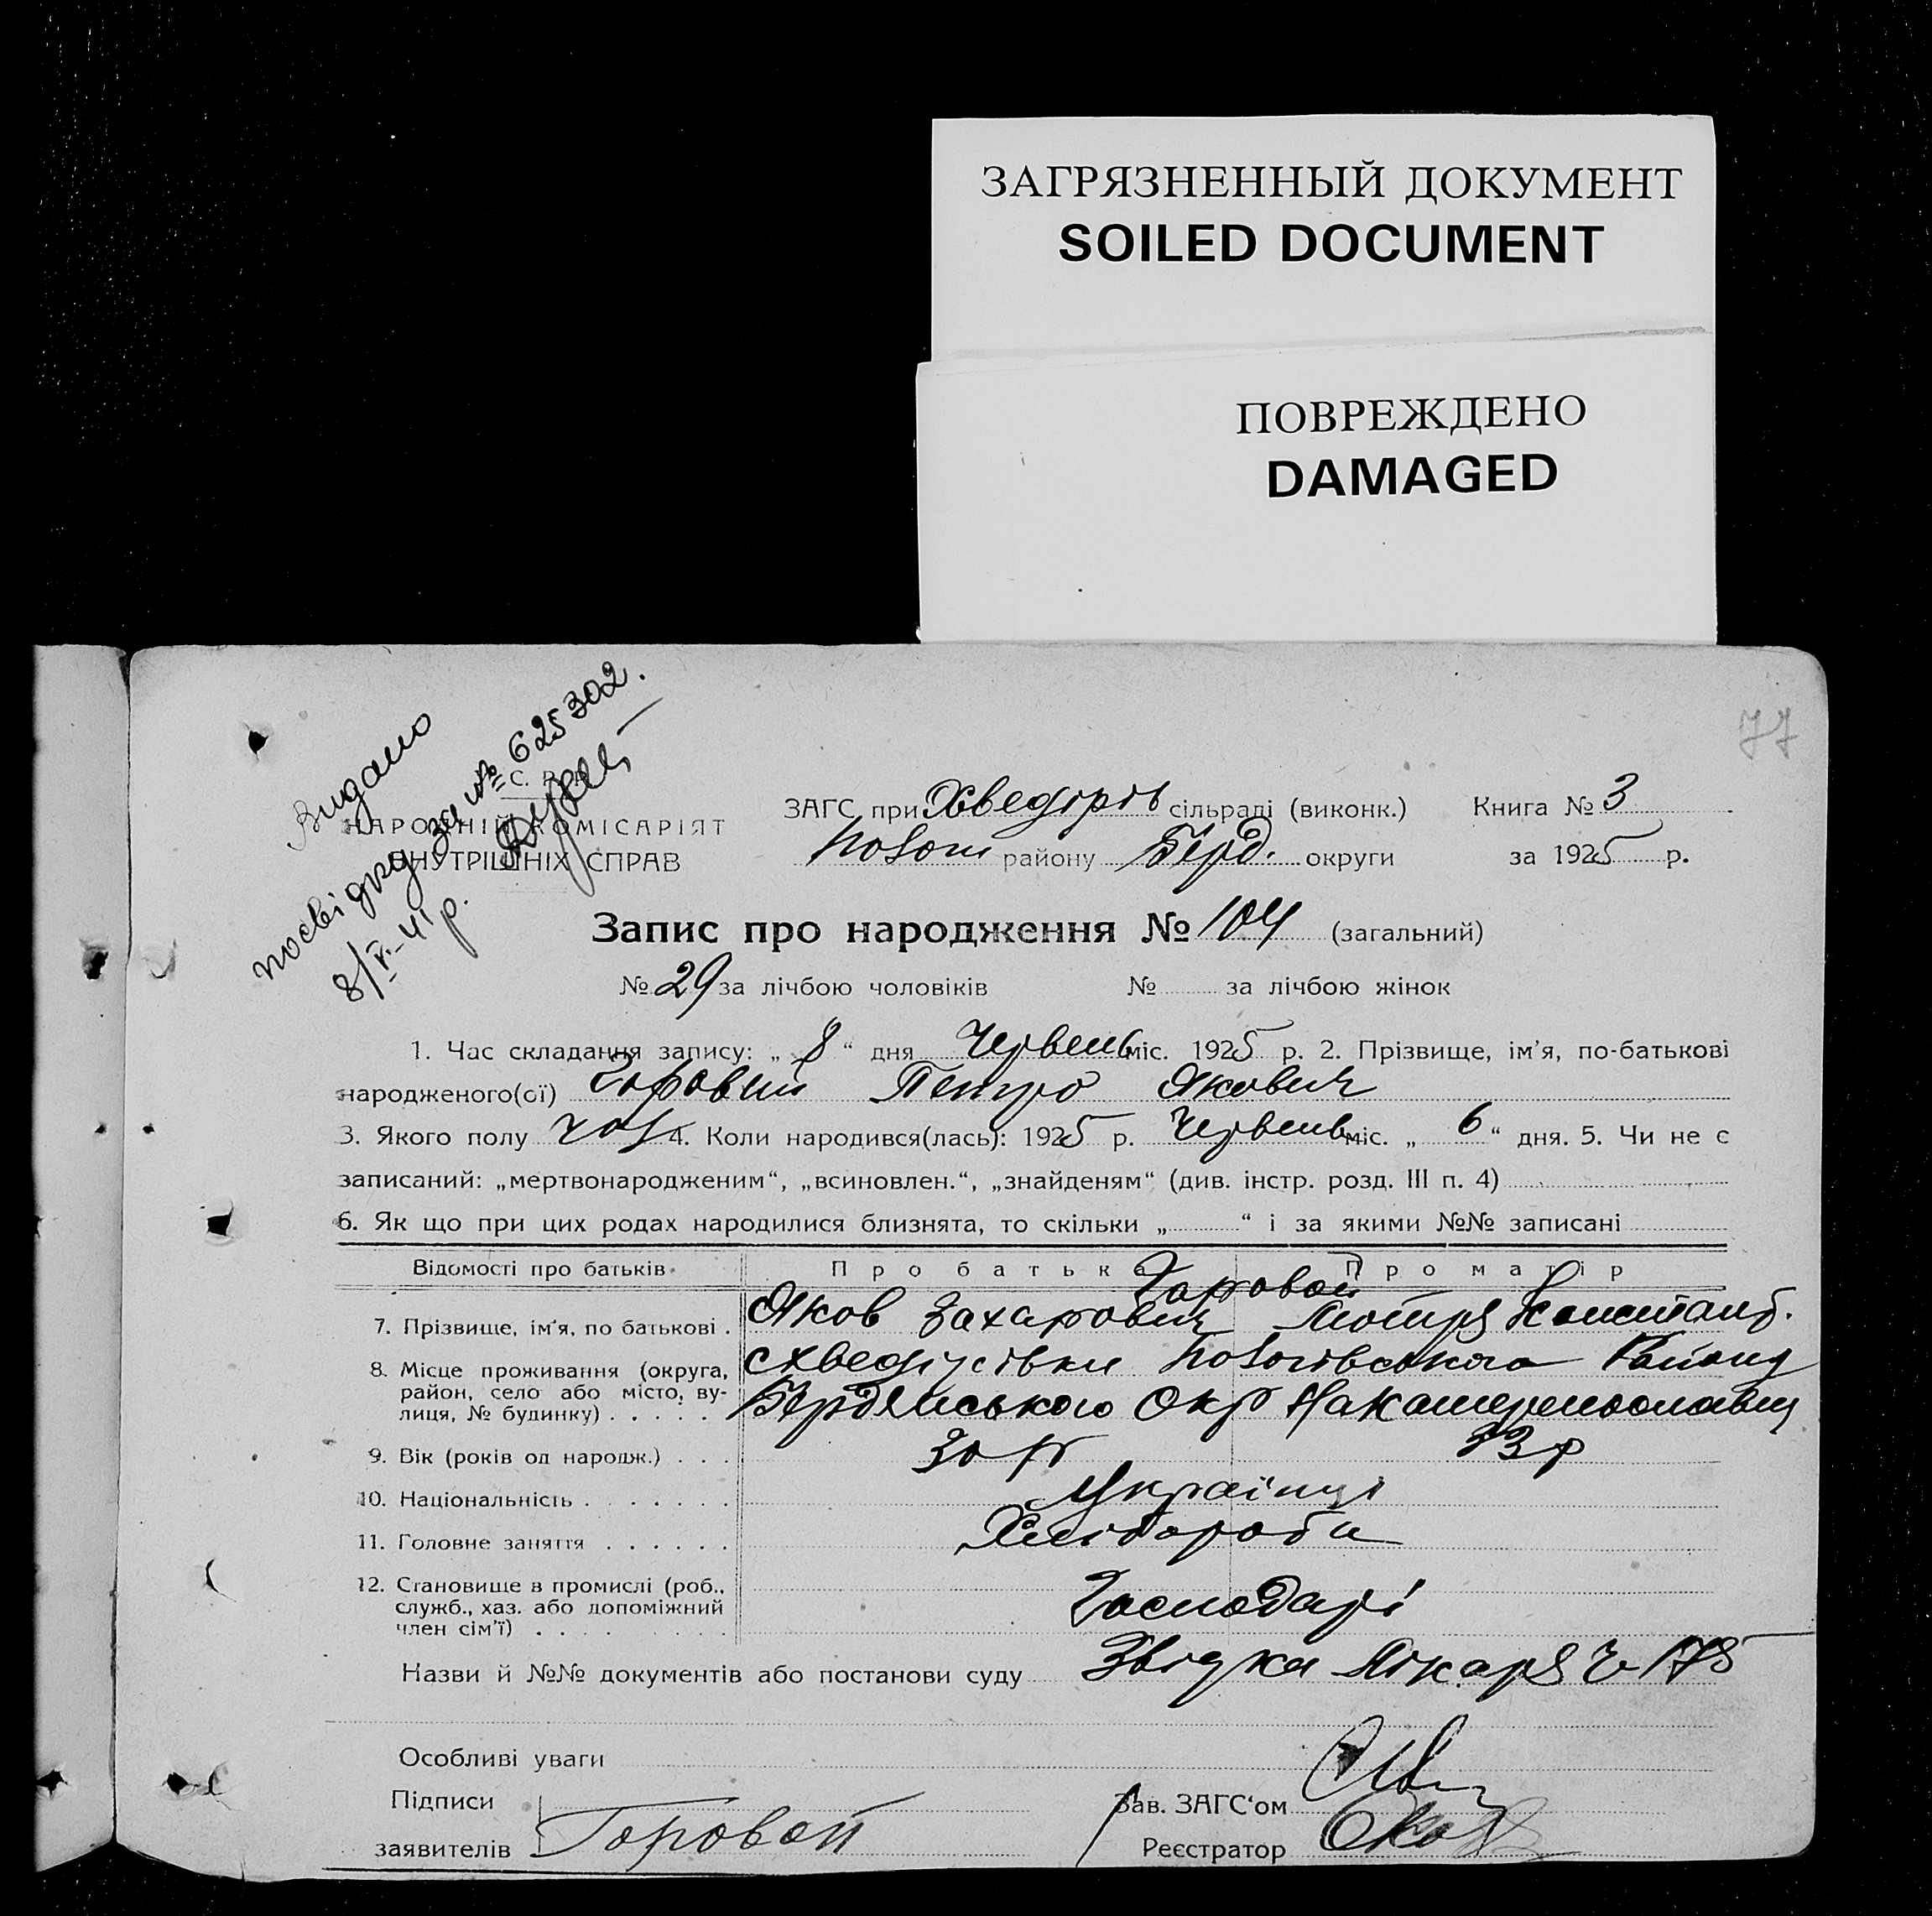 ЗАГРЯЗНЕННЫЙ ДОКУМЕНТ
SOILED DOCUMENT
ПОВРЕЖДЕНО
DAMAGED
77
Видано
посвідку за № 625302.
8/V-41 р.
НАРОДНІЙ КОМІСАРІЯТ
ВНУТРІШНІХ СПРАВ
ЗАГС при Хведірів сільраді (виконк.) Книга № 3
району Берд. округи за 1925 р.
Запис про народження № 104 (загальний)
№ 29 за лічбою чоловіків № за лічбою жінок
1. Час складання запису: „ 8 “ дня Червень міс. 1925 р. 2. Прізвище, ім’я, по-батькові
народженого(ої) Горовий Петро Якович
3. Якого полу чол 4. Коли народився(лась): 1925 р. Червень міс. „ 6 “ дня. 5. Чи не є
записаний: „мертвонародженим“, „всиновлен.“, „знайденям“ (див. інстр. розд. III п. 4)
6. Як що при цих родах народилися близнята, то скільки „ “ і за якими №№ записані
Відомості про батьків Про батька Про матір
Горовой
7. Прізвище, ім’я, по батькові . Яков Захарович Мотря Констант.
8. Місце проживання (округа, схведірівки Пологівського Району
район, село або місто, ву-
лиця, № будинку) . . . . . Бердянського Окр
9. Вік (років од народж.) . . . 30 р 33 р
10. Національність . . . . . . . Українці
11. Головне заняття . . . . . . Хлібороби
12. Становище в промислі (роб.,
служб., хаз. або допоміжний Господарі
член сім’ї) . . . .
Назви й №№ документів або постанови суду Звідка Лікаря ч 175
Особливі уваги
Підписи
Зав. ЗАГС‘ом
заявителів Горовой
Реєстратор